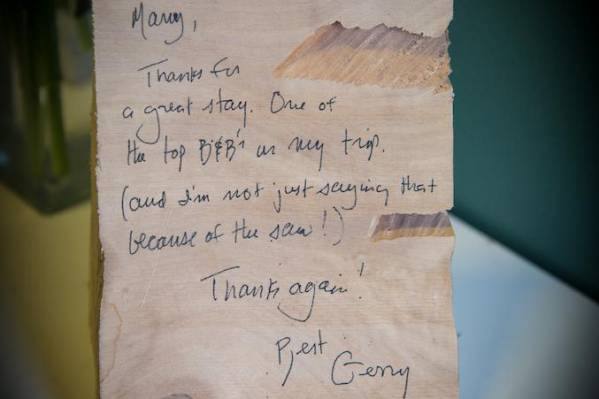 Mary,
Thanks for
a great stay. One of
the top B&B's on my trip.
(and I'm not just saying that
because of the saw!)
Thanks again!
Best
Gerry